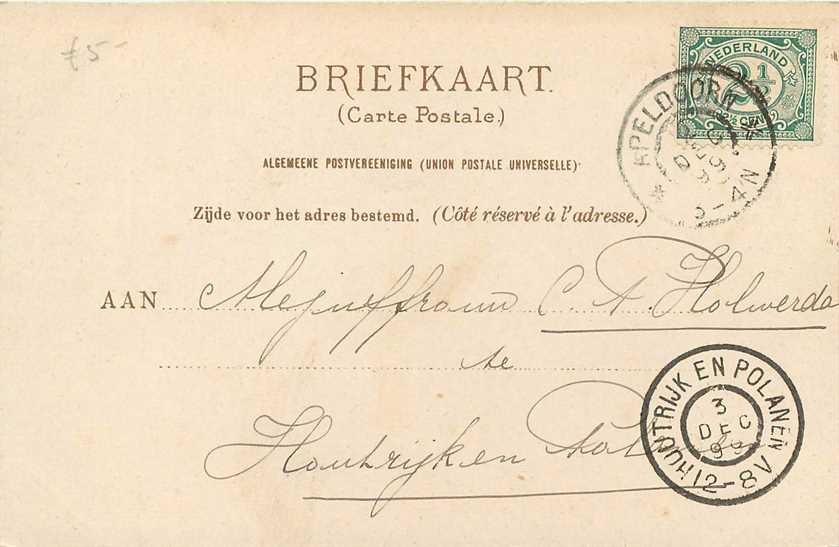 £5-
BRIEFKAART.
(Carte Postale.)
ALGEMEENE POSTVEREENIGING (UNION POSTALE UNIVERSELLE)
Zijde voor het adres bestemd. (Côté réservé à l'adresse.)
NEDERLAND
2½
APELDOORN
3-4N
AAN Mejuffrouw C. A. Holwerda
te
Houtrijk en Pol
HOUTRIJK EN POLANEN
3
DEC
99
12-8V